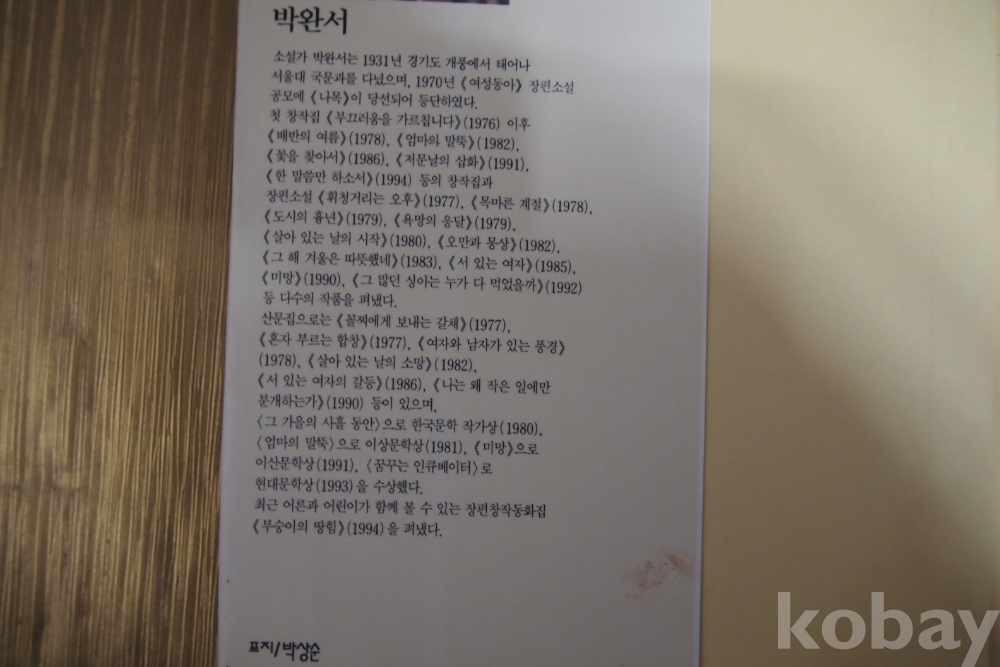 박완서
소설가 박완서는 1931년 경기도 개풍에서 태어나
서울대 국문과를 다녔으며, 1970년 《여성동아》 장편소설
공모에 《나목》이 당선되어 등단하였다.
첫 창작집 《부끄러움을 가르칩니다》(1976) 이후
《배반의 여름》(1978), 《엄마의 말뚝》(1982),
《꽃을 찾아서》(1986), 《저문날의 삽화》(1991),
《한 말씀만 하소서》(1994) 등의 창작집과
장편소설 《휘청거리는 오후》(1977), 《목마른 계절》(1978),
《도시의 흉년》(1979), 《욕망의 응달》(1979),
《살아 있는 날의 시작》(1980), 《오만과 몽상》(1982),
《그 해 겨울은 따뜻했네》(1983), 《서 있는 여자》(1985),
《미망》(1990), 《그 많던 싱아는 누가 다 먹었을까》(1992)
등 다수의 작품을 펴냈다.
산문집으로는 《꼴찌에게 보내는 갈채》(1977),
《혼자 부르는 합창》(1977), 《여자와 남자가 있는 풍경》
(1978), 《살아 있는 날의 소망》(1982),
《서 있는 여자의 갈등》(1986), 《나는 왜 작은 일에만
분개하는가》(1990) 등이 있으며,
〈그 가을의 사흘 동안〉으로 한국문학 작가상(1980),
〈엄마의 말뚝〉으로 이상문학상(1981), 《미망》으로
이산문학상(1991), 〈꿈꾸는 인큐베이터〉로
현대문학상(1993)을 수상했다.
최근 어른과 어린이가 함께 볼 수 있는 장편창작동화집
《부숭이의 땅힘》(1994)을 펴냈다.
표지/박상순
kobay